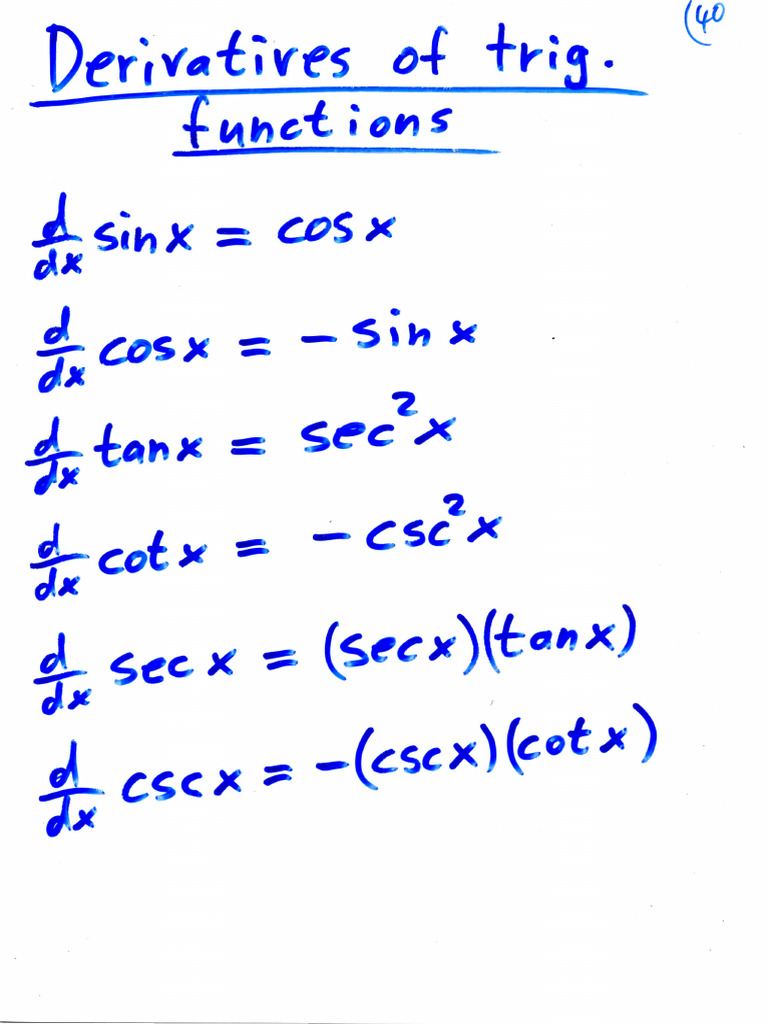 (40
Derivatives of trig.
functions
d/dx sinx = cosx
d/dx cosx = - sinx
d/dx tanx = sec²x
d/dx cotx = - csc²x
d/dx secx = (secx)(tanx)
d/dx cscx = -(cscx)(cotx)